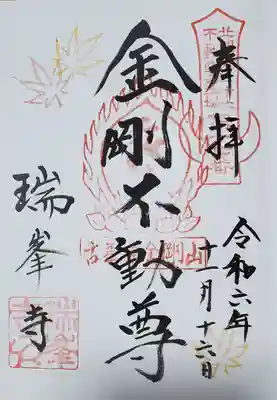 奉拝
令和六年
十一月十六日
金剛不動尊
瑞峯寺